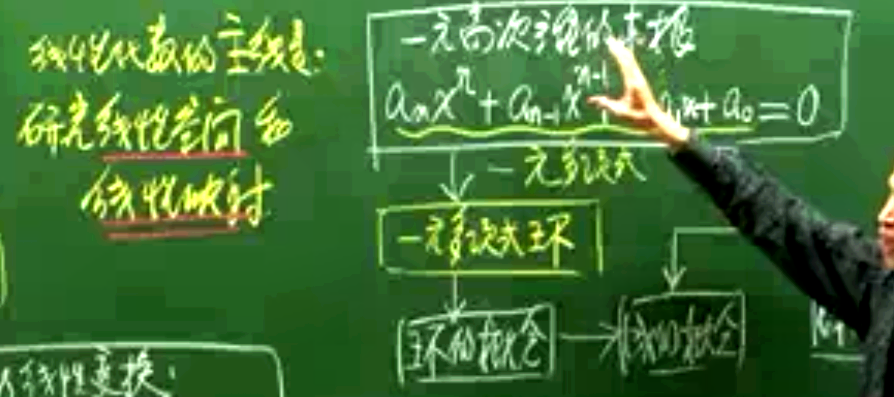 线性代数的主线是:
研究线性空间和
线性映射
一元高次方程的求根
aₙxⁿ + aₙ₋₁xⁿ⁻¹ a₁x + a₀ = 0
一元多项式
一元多项式环
环的概念
域的概念
线性变换: